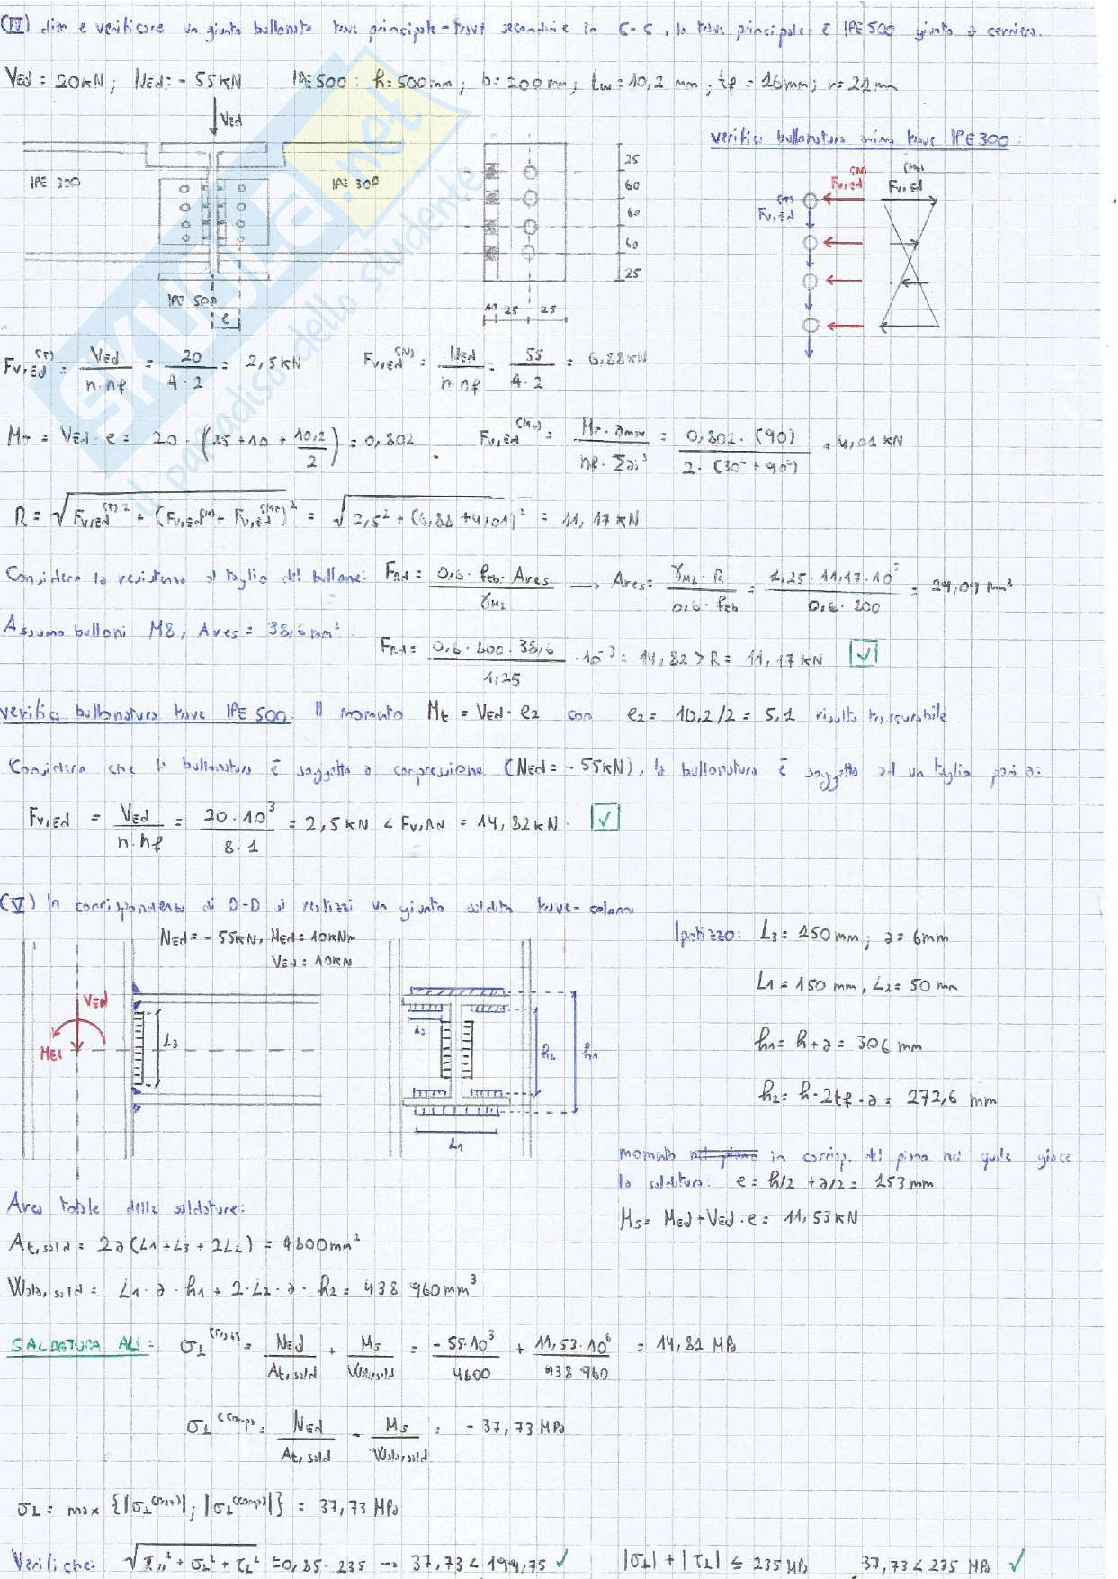 (IV) dim e verificare un giunto bullonato trave principale-trave secondaria in C-C, la trave principale è IPE500 giunto a cerniera.
VEd = 20KN ; NEd = - 55KN IPE500 : h = 500mm ; b = 200 mm ; tw = 10,2 mm ; tf = 16mm ; r = 21 mm
VEd
verifica bullonatura anima trave IPE300
IPE 300
IPE 300
25
60
60
60
25
IPE 500
e
10 25 25
Fv,Ed(N)
Fv,Ed(T)
Fv,Ed
Fv,Ed(T) = VEd / n·nf = 20 / 4·2 = 2,5KN Fv,Ed(N) = NEd / n·nf = 55 / 4·2 = 6,88KN
MT = VEd · e = 20 · (25 +10 + 10,2/2) = 0,802 Fv,Ed = MT · amax / nf · Σai² = 0,802 · (90) / 2 · (30² + 90²) = 4,01 KN
R = √ Fv,Ed(T)² + (Fv,Ed(N) + Fv,Ed)² = √ 2,5² + (6,88 + 4,01)² = 11,17KN
Considero la resistenza al taglio del bullone: FRd = 0,6 · ftb · Ares / γM2 → Ares = γM2 · R / 0,6 · ftb = 1,25 · 11,17·10³ / 0,6 · 800 = 29,09 mm²
Assumo bulloni M8, Ares = 38,6mm².
FRd = 0,6 · 800 · 38,6 / 1,25 · 10⁻³ = 14,82 > R = 11,17KN ✓
verifica bullonatura trave IPE 500. Il momento Mt = VEd · e2 con e2 = 10,2/2 = 5,1 risulta trascurabile
Considero che la bullonatura è soggetta a compressione (NEd = - 55KN), la bullonatura è soggetta ad un taglio pari a:
Fv,Ed = VEd / n·nf = 20·10³ / 8·1 = 2,5KN < Fv,Rd = 14,82KN. ✓
(V) In corrispondenza di D-D si realizzi un giunto saldato trave-colonna
NEd = - 55KN, MEd = 10KNm
VEd = 10KN
Ipotizzo: L3 = 250mm ; a = 6mm
L1 = 150 mm, L2 = 50 mm
h1 = h + a = 306 mm
h2 = h - 2tf - a = 272,6 mm
VEd
MEd
L3
L2
h2
h1
L1
momento in corrisp. del piano nel quale giace
la saldatura. e = h/2 + a/2 = 153mm
MS = MEd + VEd · e = 11,53KN
Area totale delle saldature:
At,sald = 2a (L1 + L3 + 2L2) = 4800mm²
Wola,sald = L1 · a · h1 + 2·L2 · a · h2 = 438 960mm³
SALDATURA ALI = σ⊥ = NEd / At,sald + MS / Wola,sald = - 55·10³ / 4800 + 11,53·10⁶ / 438 960 = 14,81 MPa
σ⊥(comp) = NEd / At,sald - MS / Wola,sald = - 37,73 MPa
σ⊥ = max {|σ⊥|; |σ⊥(comp)|} = 37,73 MPa
Verifiche: √ τ//² + σ⊥² + τ⊥² = 0,85 · 235 → 37,73 < 199,75 ✓ |σ⊥| + |τ⊥| ≤ 235 MPa 37,73 < 235 MPa ✓
SKUOLA.net
il paradiso dello studente